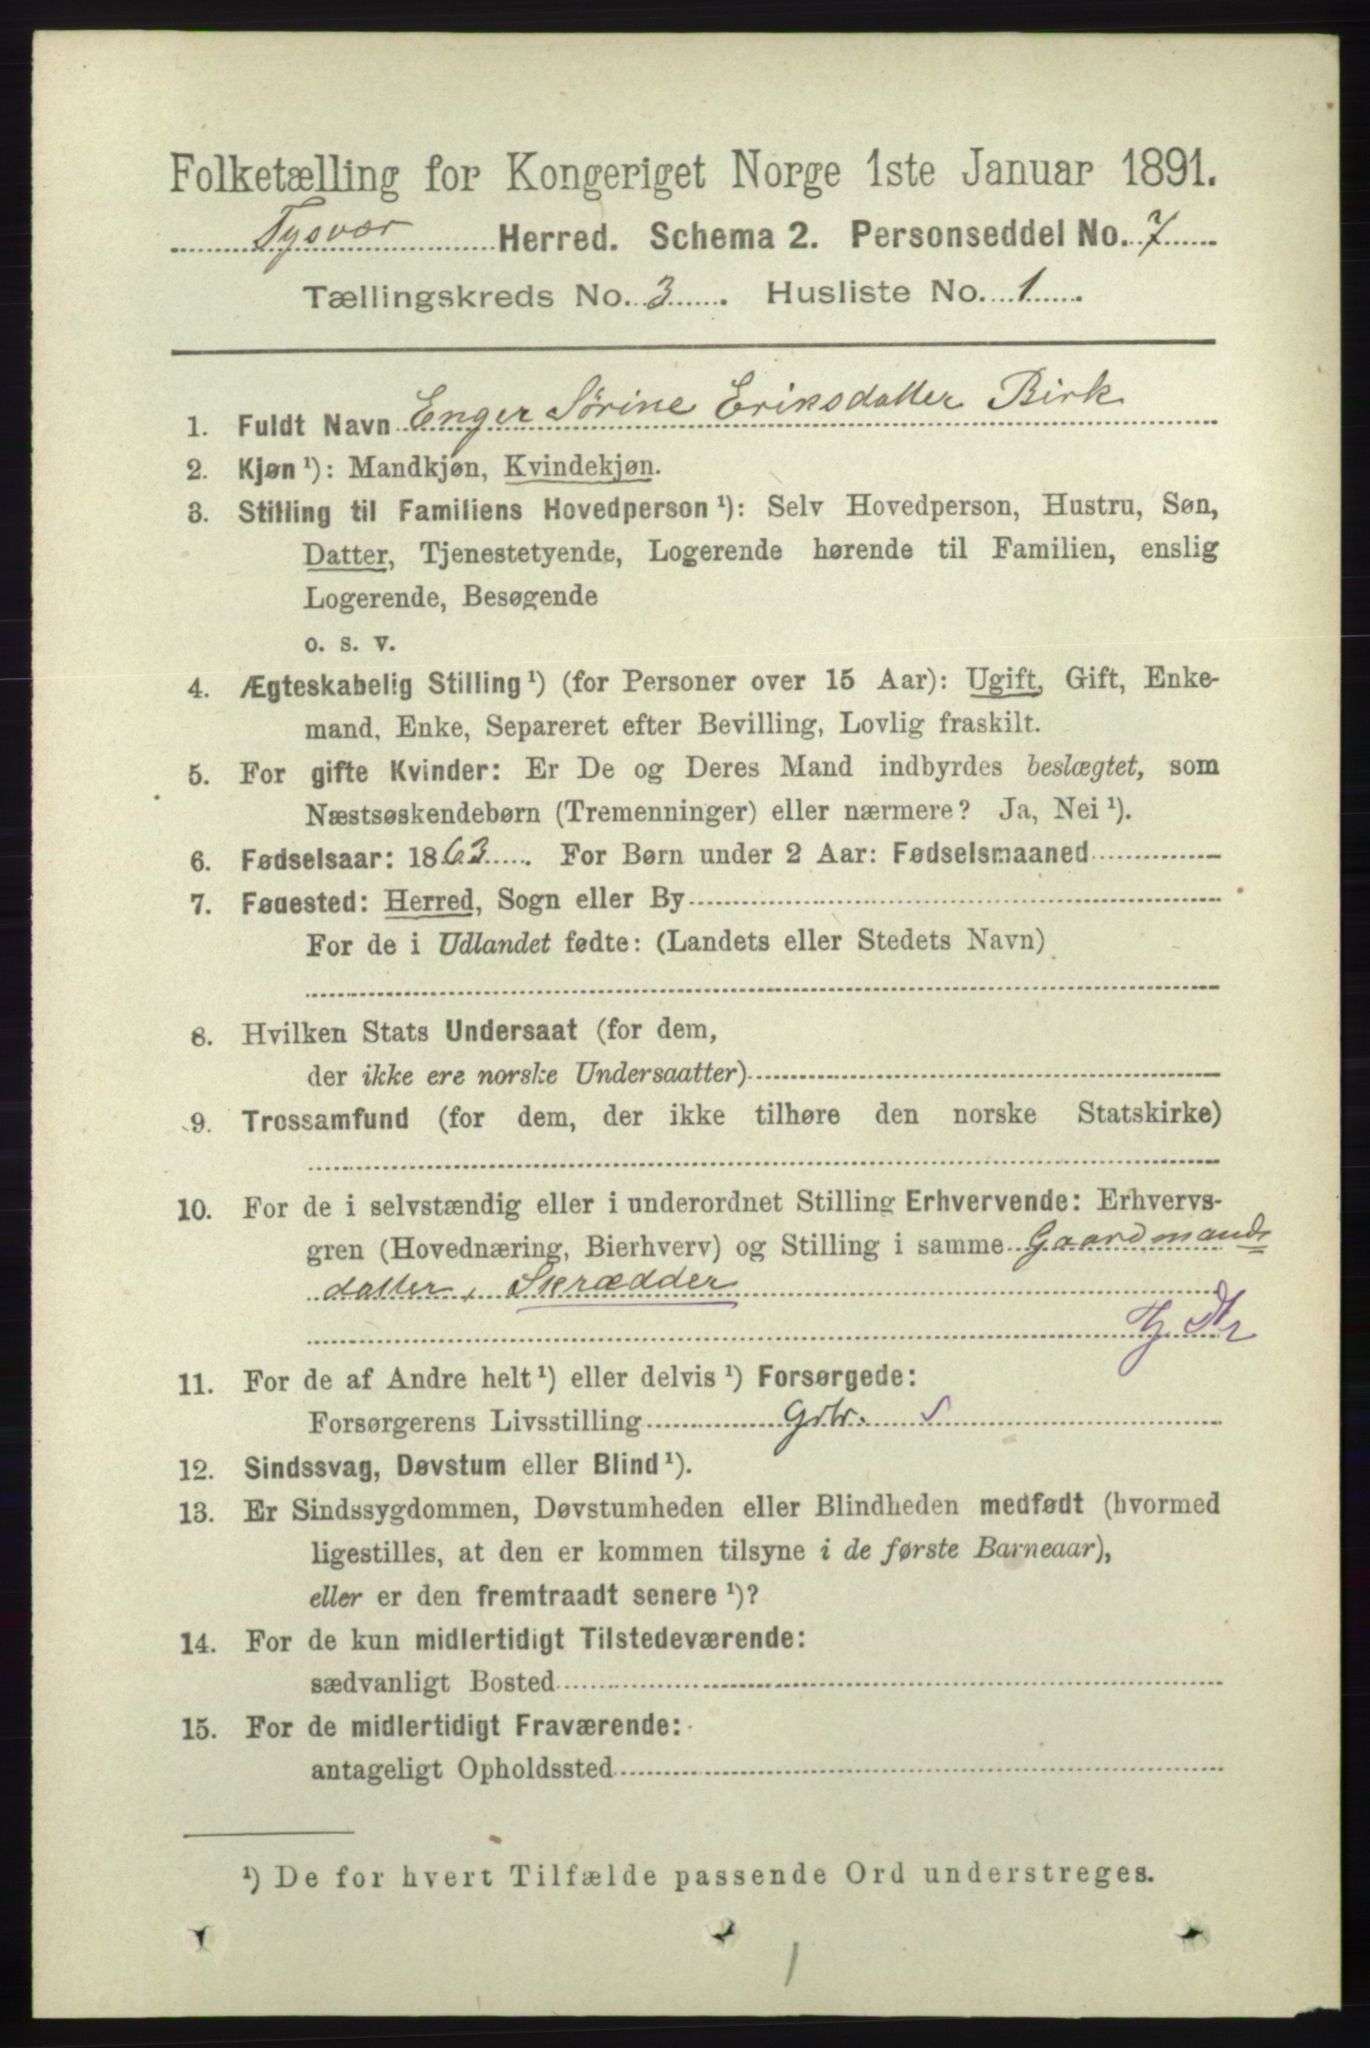 Folketælling for Kongeriget Norge 1ste Januar 1891.
Tysvær Herred. Schema 2. Personseddel No. 7
Tællingskreds No. 3. Husliste No. 1.
1. Fuldt Navn Enger Sørine Eriksdatter Birk
2. Kjøn¹): Mandkjøn, Kvindekjøn.
3. Stilling til Familiens Hovedperson¹): Selv Hovedperson, Hustru, Søn,
Datter, Tjenestetyende, Logerende hørende til Familien, enslig
Logerende, Besøgende
o. s. v.
4. Ægteskabelig Stilling¹) (for Personer over 15 Aar): Ugift, Gift, Enke-
mand, Enke, Separeret efter Bevilling, Lovlig fraskilt.
5. For gifte Kvinder: Er De og Deres Mand indbyrdes beslægtet, som
Næstsøskendebørn (Tremenninger) eller nærmere? Ja, Nei¹).
6. Fødselsaar: 1863. For Børn under 2 Aar: Fødselsmaaned
7. Fødested: Herred, Sogn eller By
For de i Udlandet fødte: (Landets eller Stedets Navn)
8. Hvilken Stats Undersaat (for dem,
der ikke ere norske Undersaatter)
9. Trossamfund (for dem, der ikke tilhøre den norske Statskirke)
10. For de i selvstændig eller i underordnet Stilling Erhvervende: Erhvervs-
gren (Hovednæring, Bierhverv) og Stilling i samme Gaardmands=
datter, Skrædder
11. For de af Andre helt¹) eller delvis¹) Forsørgede:
Forsørgerens Livsstilling Gbr. S
12. Sindssvag, Døvstum eller Blind¹).
13. Er Sindssygdommen, Døvstumheden eller Blindheden medfødt (hvormed
ligestilles, at den er kommen tilsyne i de første Barneaar),
eller er den fremtraadt senere¹)?
14. For de kun midlertidigt Tilstedeværende:
sædvanligt Bosted
15. For de midlertidigt Fraværende:
antageligt Opholdssted
¹) De for hvert Tilfælde passende Ord understreges.
1